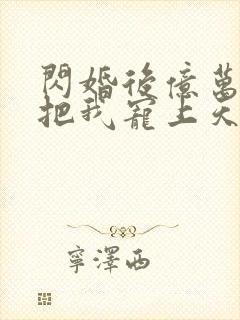 閃婚後億萬
把我寵上天
寧澤西